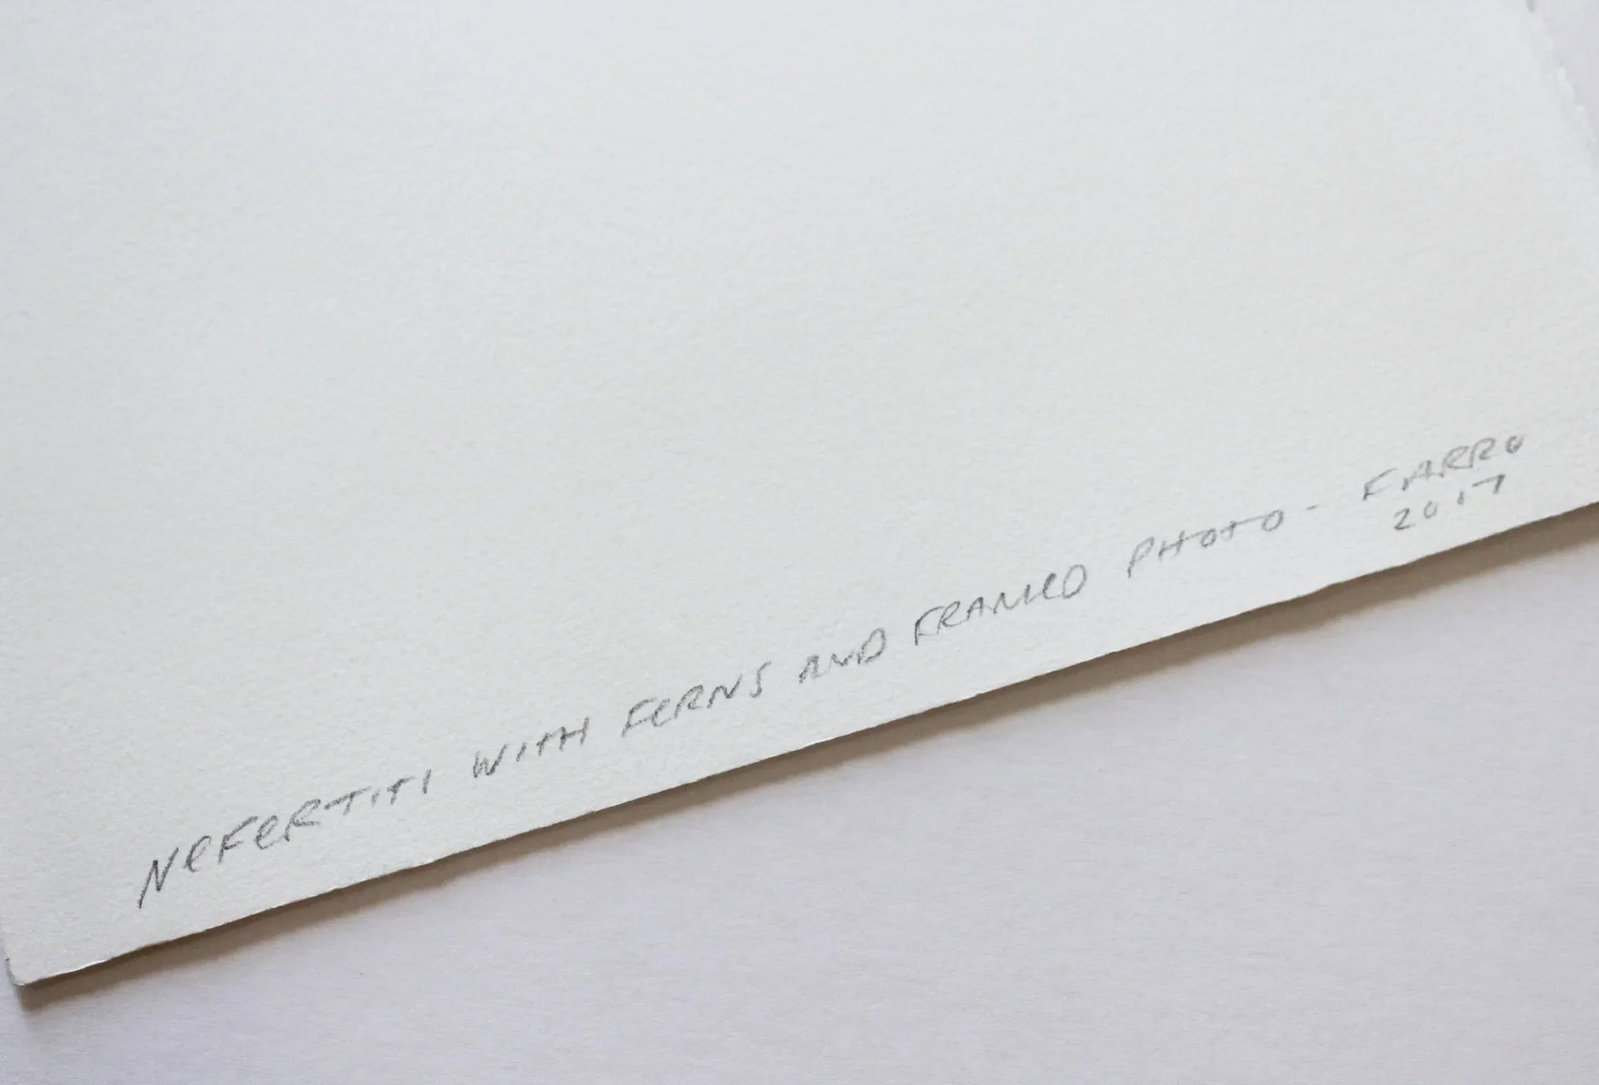 NeFeRTiTi WiTH FeRNS AND FRAMeD PHOTO - FARRO
2017